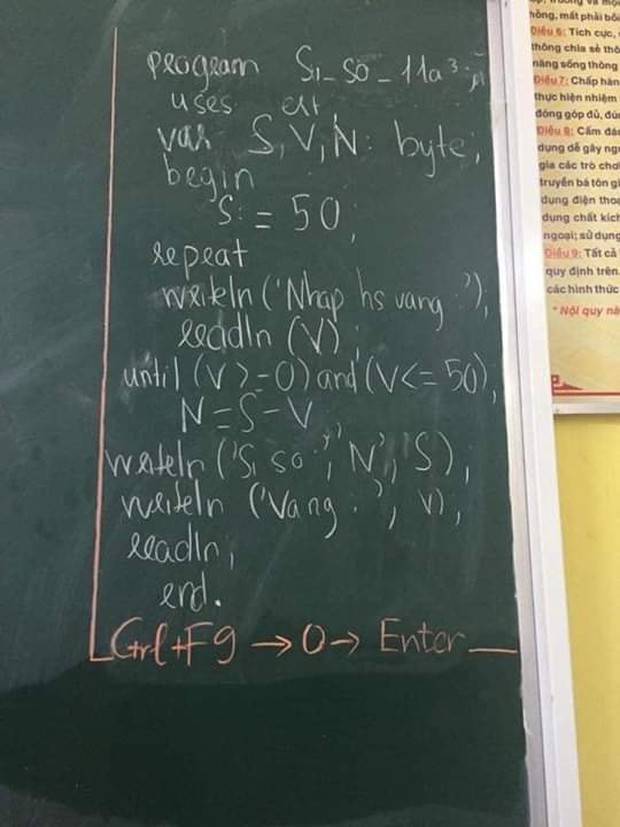 program Si_so_11a3;
uses crt,
var S, V, N: byte;
begin
S: = 50;
repeat
writeln ('Nhap hs vang:'),
readln (V);
until (V >=0) and (V<= 50),
N=S-V
writeln ('Si so:', N, '/', S);
writeln ('Vang:', V);
readln;
end.
Ctrl+F9 → 0 → Enter
hông, mất phải bồi
Điều 6: Tích cực,
thông chia sẻ
năng sống thông
Điều 7: Chấp hàn
thực hiện nhiệm
đóng góp đủ, đú
Điều 8: Cấm
dụng dễ gây ng
gia các trò chơi
truyền bá tôn gi
dụng điện tho
dụng chất kích
ngoại; sử dụng
Điều 9: Tất cả
quy định trên.
các hình thức
* Nội quy nà